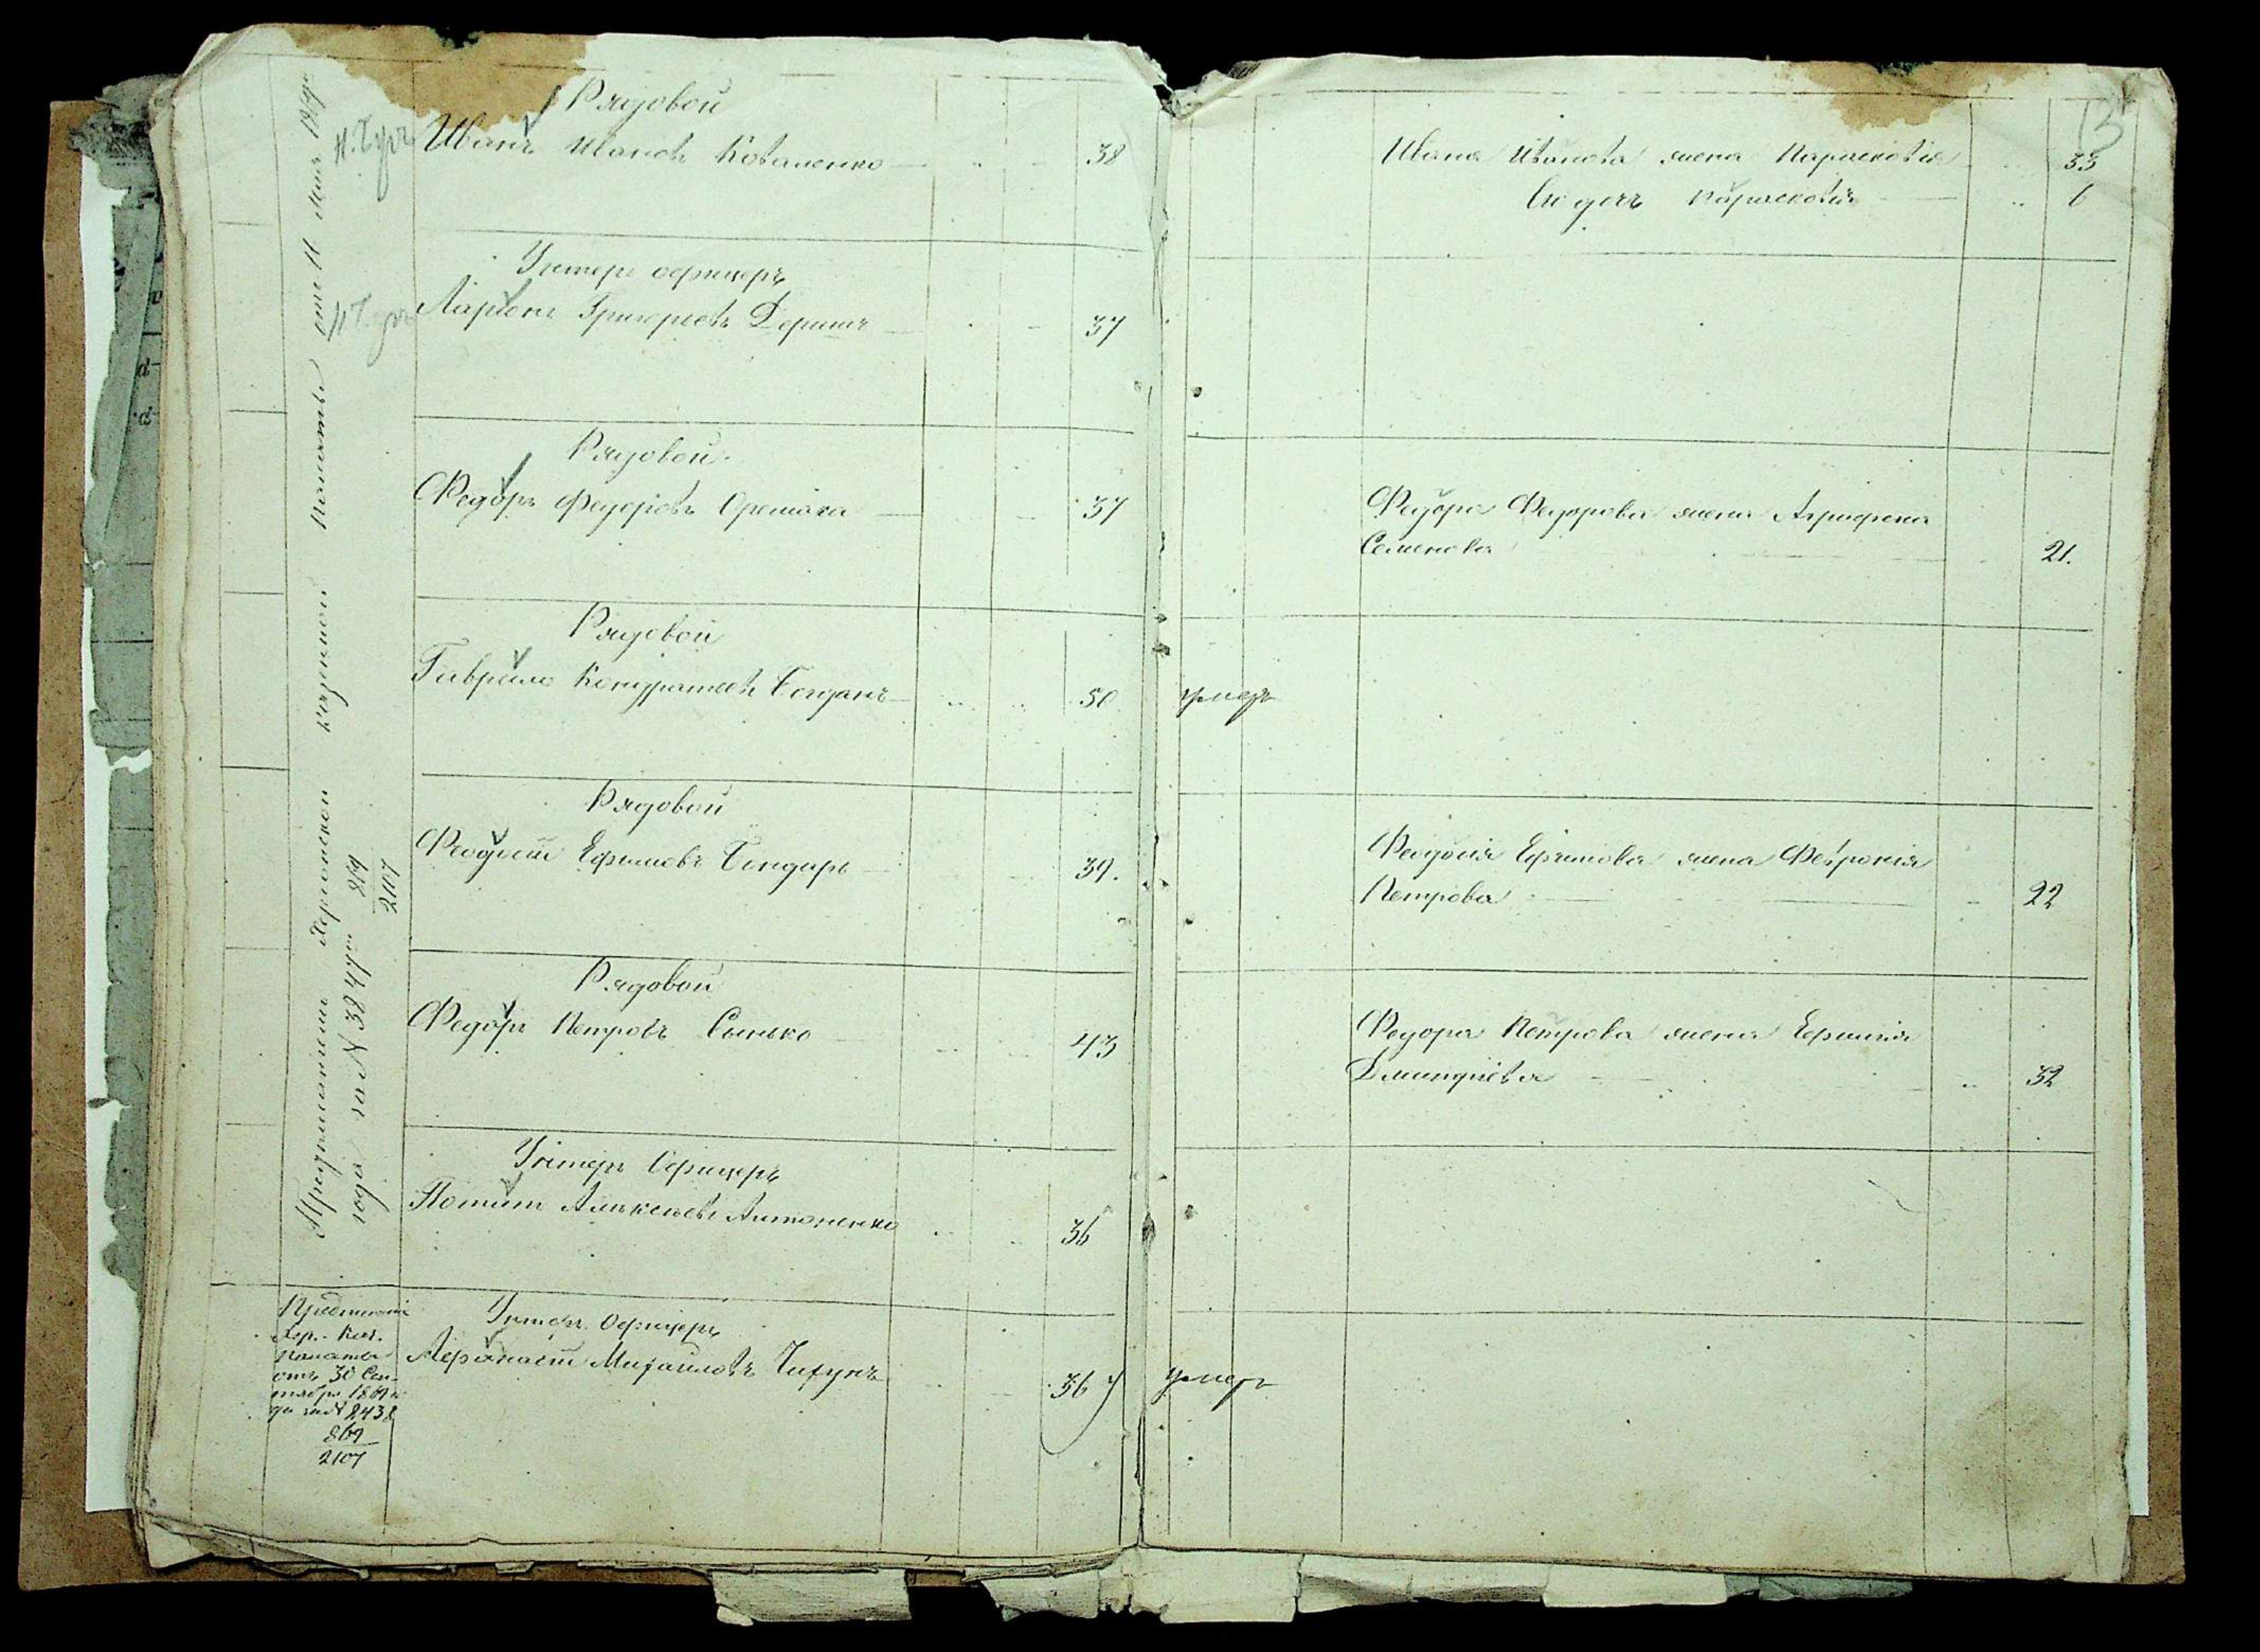 13
Рядовой
Иванъ Ивановъ Коваленко 38
Ивана Иванова жена Парасковія 33
Ея дочь Парасковія 6
Унтеръ офицеръ
Ларіонъ Григорьевъ 37
Рядовой
Федоръ Федоровъ 37
Федора Федорова жена Агрифена
Семенова 21.
Рядовой
Гаврило Кондратьевъ Богданъ 50 умеръ
Рядовой
Феодосій Ефимовъ Бондарь 39.
Феодосія Ефимова жена Февронія
Петрова 22
Рядовой
Федоръ Петровъ Сынько 43
Федора Петрова жена Ефимія
Дмитріева 32
Унтеръ Офицеръ
Потапъ Алексѣевъ Антоненко 36
Унтеръ Офицеръ
Афанасій Михайловъ Чихунъ 36 умеръ
Предписаніе Херсонской казенной Палаты отъ 11 Мая
года за N 3847 869
2107
Предписаніе
Хер. Каз.
Палаты
отъ 30 Сен-
тября 1869 го-
да за N 8438
869
2107